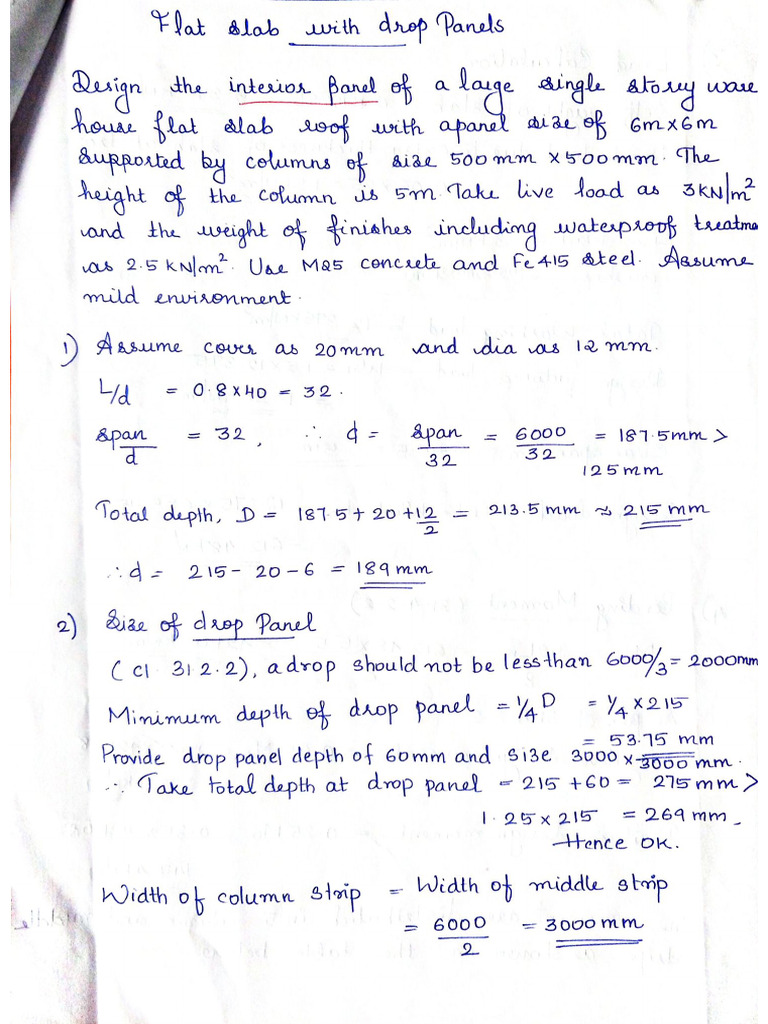 Flat slab with drop Panels
Design the interior panel of a large single storey ware
house flat slab roof with a panel size of 6m x 6m
supported by columns of size 500 mm x 500 mm. The
height of the column is 5m. Take live load as 3 KN/m²
and the weight of finishes including waterproof treatme
as 2.5 KN/m². Use M25 concrete and Fe 415 steel. Assume
mild environment.
1) Assume cover as 20mm and dia as 12 mm.
L/d = 0.8 x 40 = 32.
span/d = 32, ∴ d = span/32 = 6000/32 = 187.5mm >
125mm
Total depth, D = 187.5 + 20 + 12/2 = 213.5 mm ≈ 215 mm
∴ d = 215 - 20 - 6 = 189 mm
2) Size of drop Panel
(Cl 31.2.2), a drop should not be less than 6000/3 = 2000mm
Minimum depth of drop panel = 1/4 D = 1/4 x 215
= 53.75 mm
Provide drop panel depth of 60mm and size 3000 x 3000 mm.
∴ Take total depth at drop panel = 215 + 60 = 275 mm >
1.25 x 215 = 269 mm
Hence OK.
Width of column strip = Width of middle strip
= 6000/2 = 3000 mm